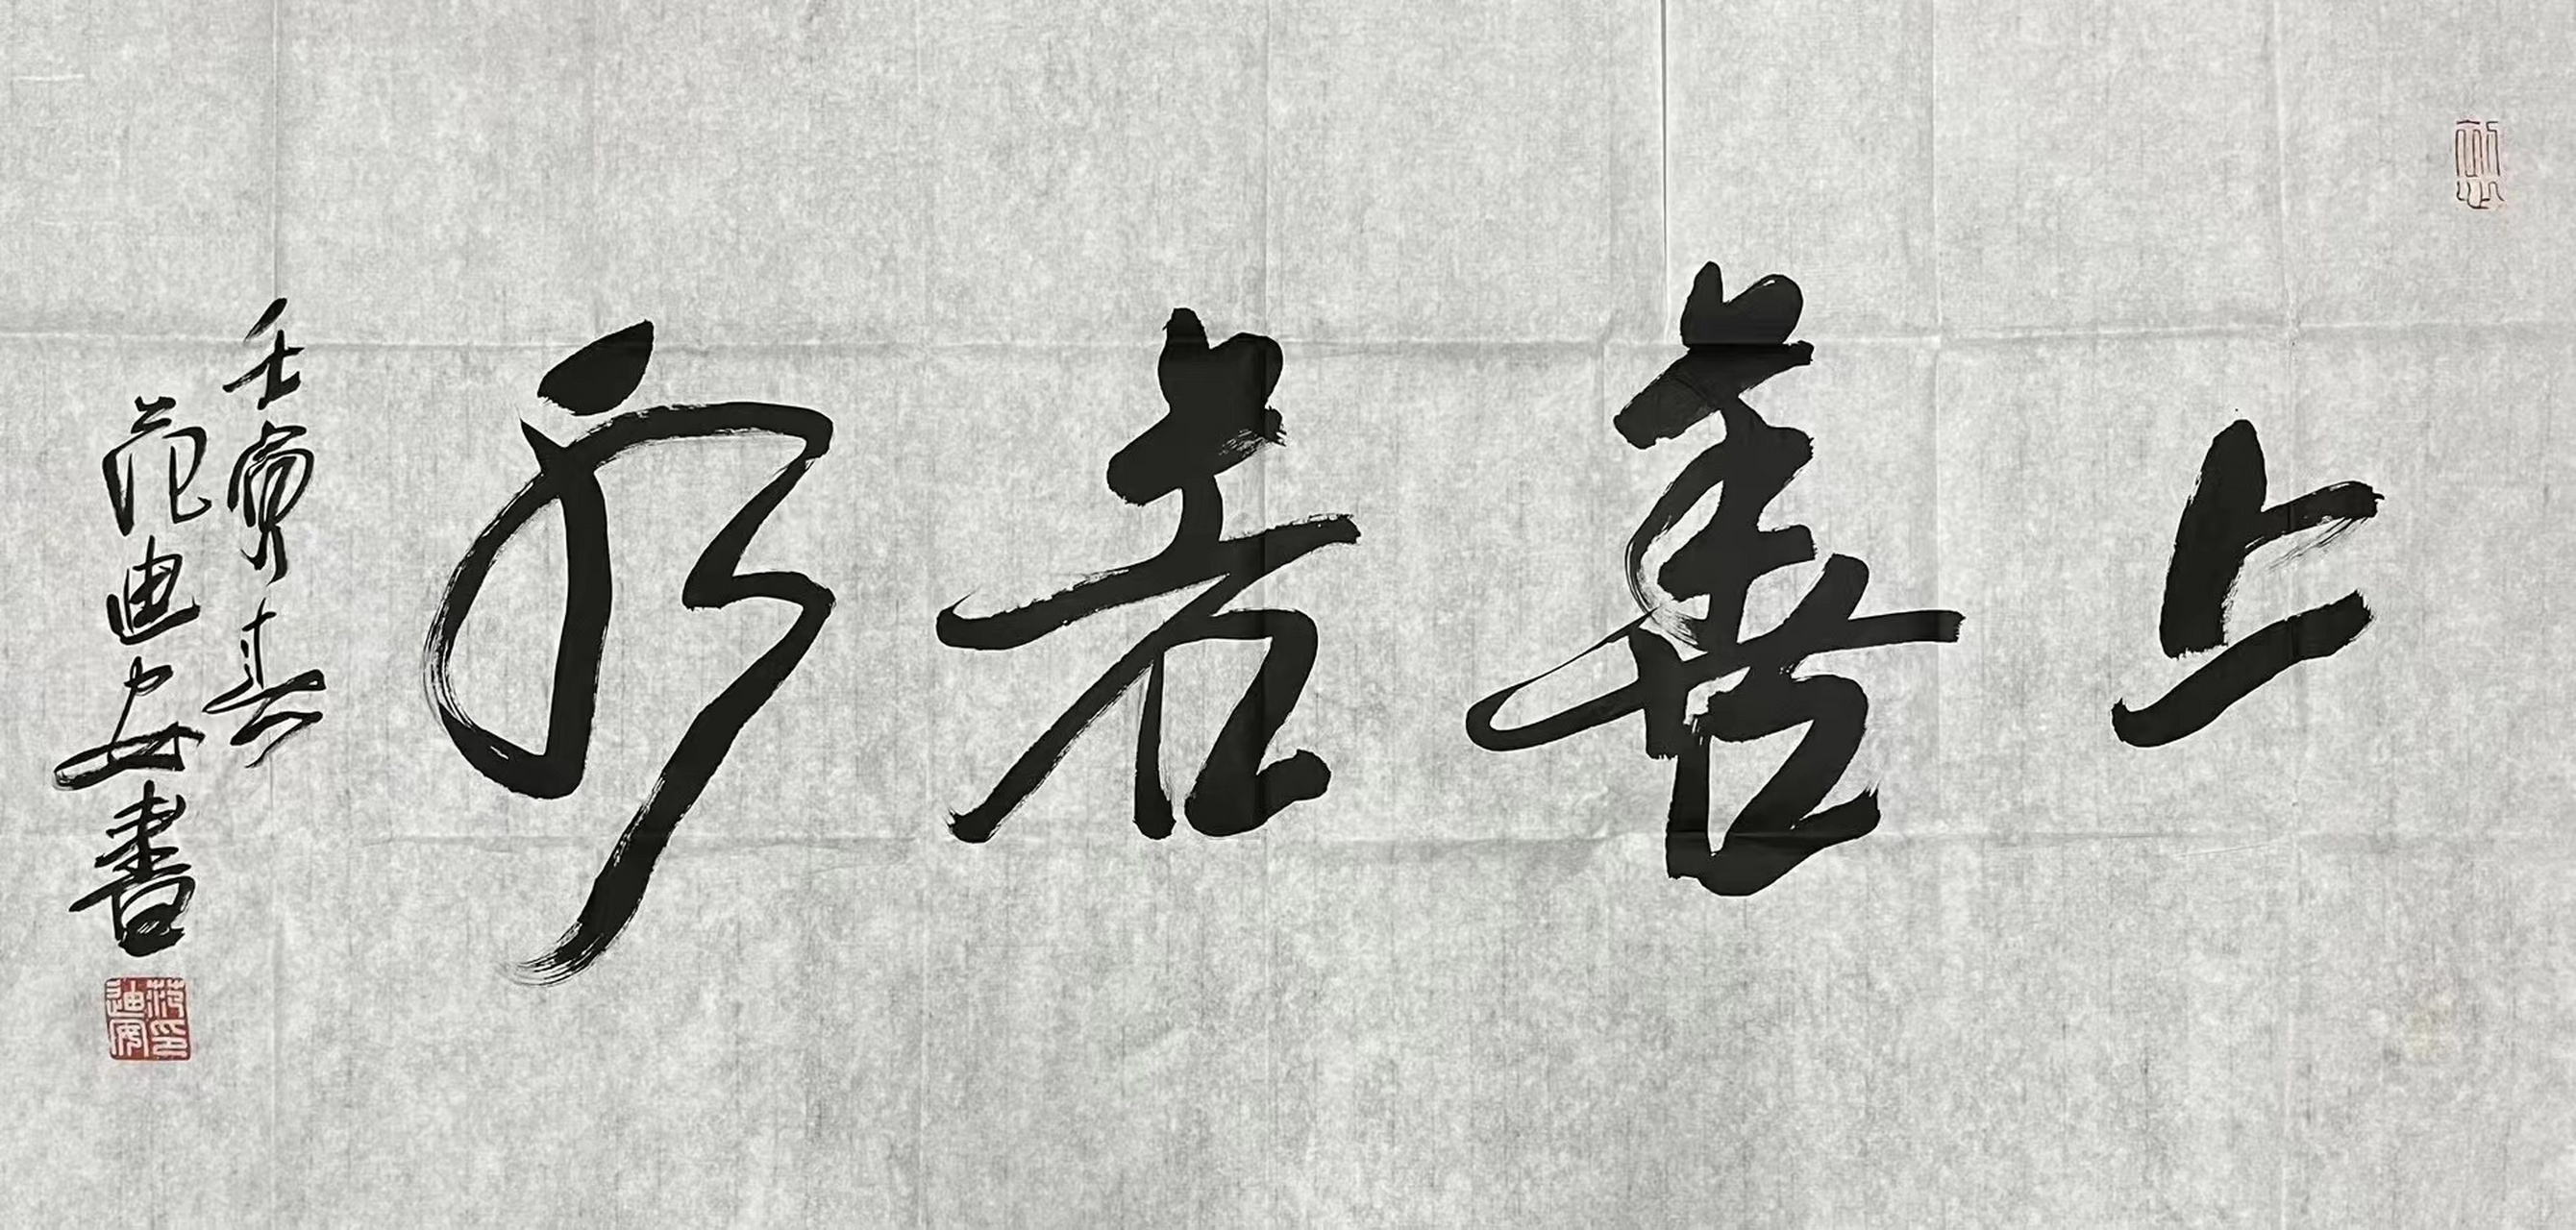 上善若水
壬寅春
范迪安書
范印迪安